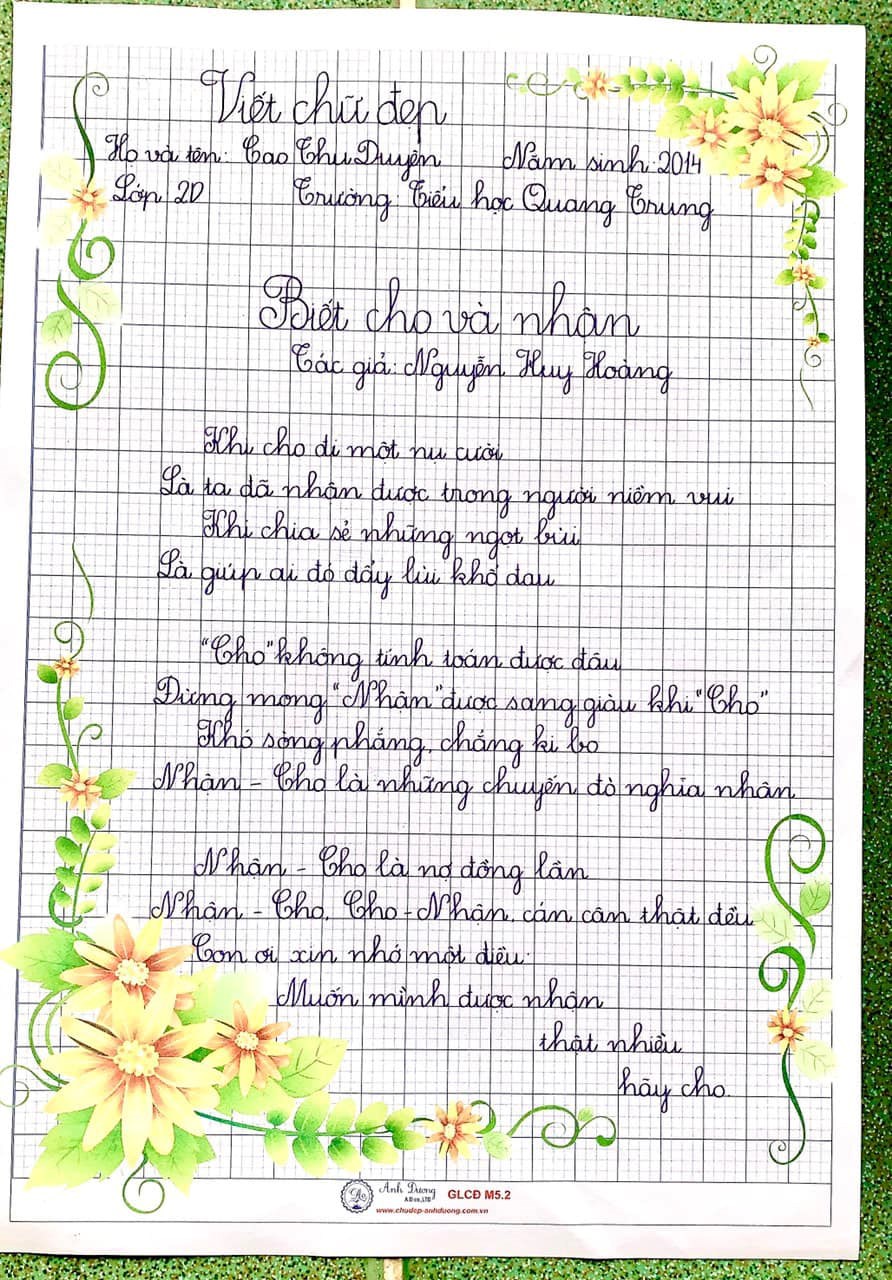 Viết chữ đẹp
Họ và tên: Cao Thu Duyên Năm sinh: 2014
Lớp 2D Trường: Tiểu học Quang Trung
Biết cho và nhận
Tác giả: Nguyễn Huy Hoàng
Khi cho đi một nụ cười
Là ta đã nhận được trong người niềm vui
Khi chia sẻ những ngọt bùi
Là giúp ai đó đẩy lùi khổ đau
"Cho" không tính toán được đâu
Đừng mong "Nhận" được sang giàu khi "Cho"
Khó sòng phẳng, chẳng ki bo
Nhận - Cho là những chuyến đò nghĩa nhân
Nhận - Cho là nợ đồng lần
Nhận - Cho, Cho - Nhận, cán cân thật đều
Con ơi xin nhớ một điều:
Muốn mình được nhận
thật nhiều
hãy cho.
Ánh Dương
A.D co.,LTD
GLCĐ M5.2
www.chudep-anhduong.com.vn